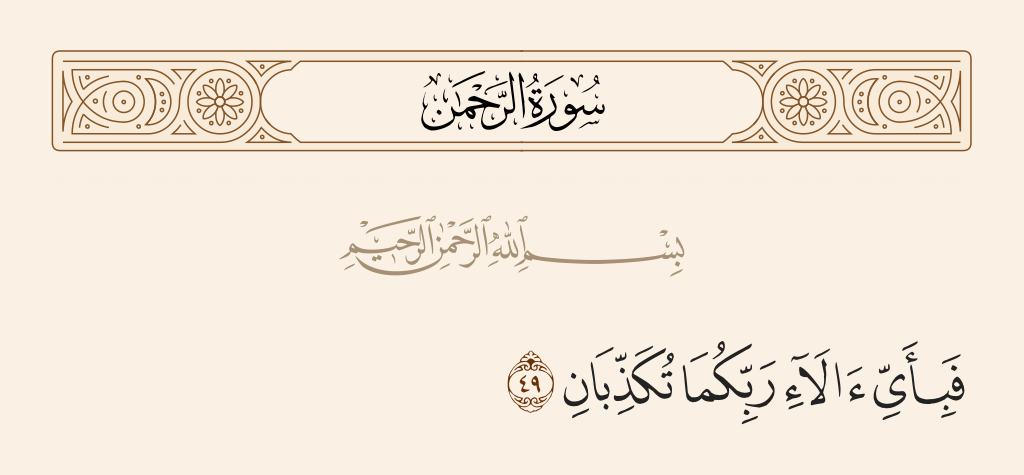 سُورَةُ الرَّحْمَٰن
بِسْمِ ٱللَّهِ ٱلرَّحْمَٰنِ ٱلرَّحِيمِ
فَبِأَىِّ ءَالَآءِ رَبِّكُمَا تُكَذِّبَانِ ٤٩